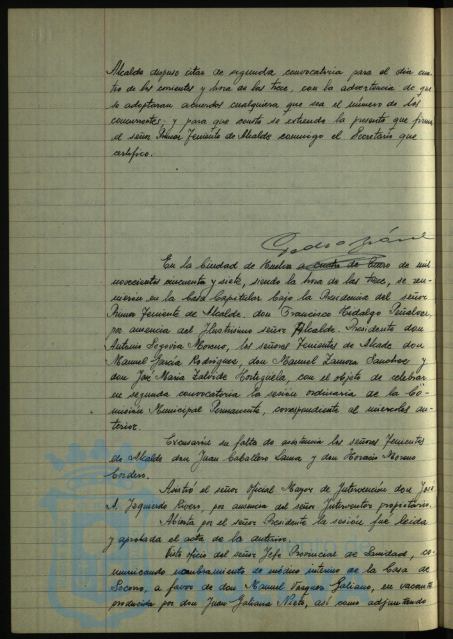 Alcalde dispuso citar de segunda convocatoria para el dia cua-
tro de los corrientes y hora de las trece, con la advertencia de que
se adoptaran acuerdos cualquiera que sea el número de los
concurrentes; y para que conste se extiende la presente que firma
el señor Primer Teniente de Alcalde conmigo el Secretario que
certifico.
En la Ciudad de Huelva a cuatro de Enero de mil
novecientos cincuenta y siete, siendo la hora de las trece, se reu-
nieron en la Casa Capitular bajo la Presidencia del señor
Primer Teniente de Alcalde don Francisco Hidalgo Peñalosa,
por ausencia del Ilustrisimo señor Alcalde Presidente don
Antonio Segovia Moreno, los señores Tenientes de Alcalde don
Manuel Garcia Rodriguez, don Manuel Zamora Sanchez y
don José Maria Zalvide Hortiguela, con el objeto de celebrar
en segunda convocatoria la sesión ordinaria de la Co-
misión Municipal Permanente, correspondiente al miercoles an-
terior.
Excusaron su falta de asistencia los señores Tenientes
de Alcalde don Juan Caballero Lama y don Horacio Moreno
Cordero.
Asistió el señor Oficial Mayor de Intervención don José
A. Izquierdo Rivero, por ausencia del señor Interventor propietario.
Abierta por el señor Presidente la sesión fué leida
y aprobada el acta de la anterior.
Visto oficio del señor Jefe Provincial de Sanidad, co-
municando nombramiento de médico interno de la Casa de
Socorro, a favor de don Manuel Vazquez Galiano, en vacante
producida por don Juan Galiana Nieto, asi como adjuntando